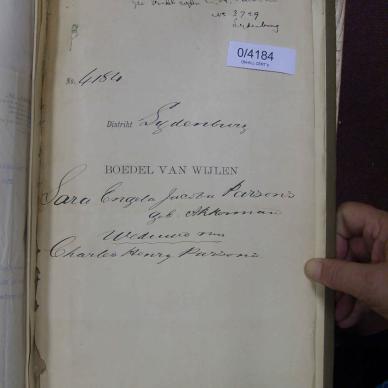 No 3729
Lydenburg
0/4184
No. 4184
Distrikt Lydenburg
BOEDEL VAN WIJLEN
Sara Engela Jacoba Parsons
geb. Akkerman
Weduwe van
Charles Henry Parsons